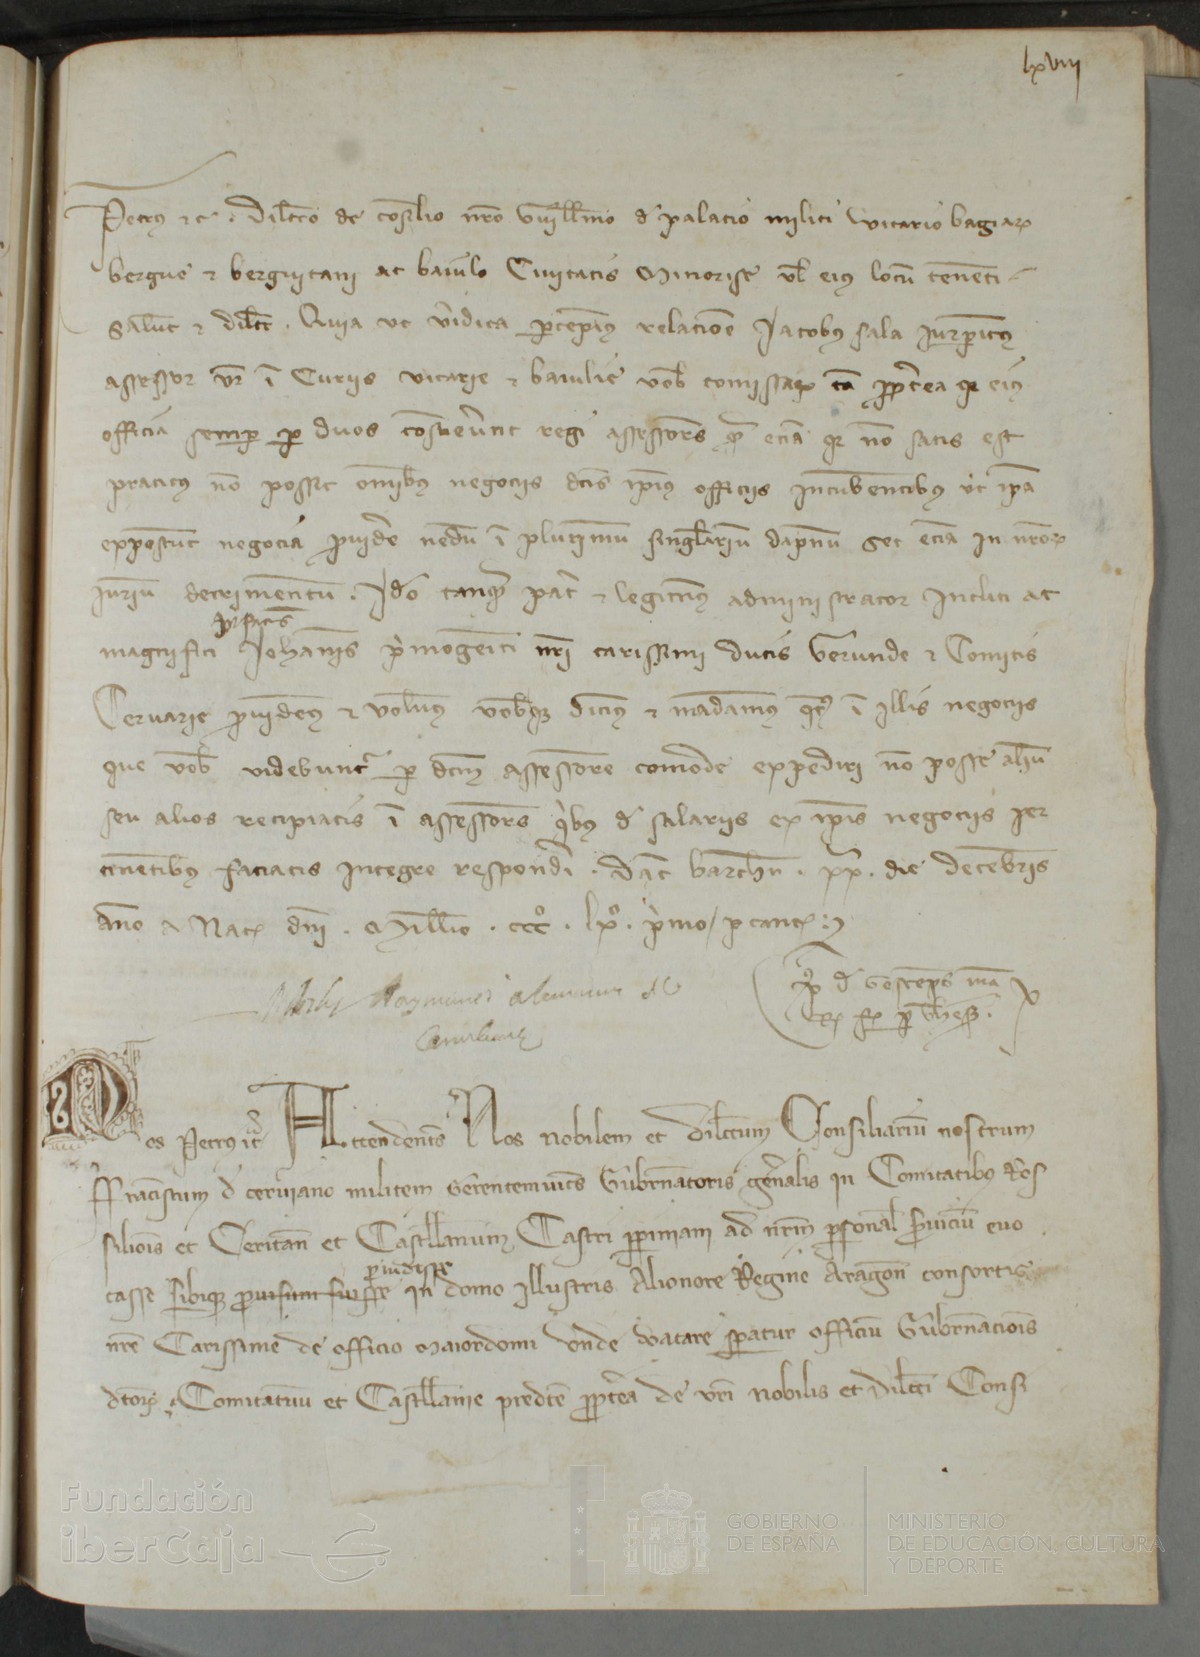 lxviij
Petrus etc. Dilcto de consilio nro Guillmo d palacio militi vicario bagiar
bergue et berguitani ac baiulo Civitatis Minorise vl eius locum tenenti
Salut et dilct. Quia ut veridica percepimus relatione Jacobus sala Jurisperitus
assessor vr in Curiis vicarie et baiulie vob comissar tam propterea qr eius
officia semper per duos consueverunt regi assessores quam etiam qr non satis est
practicus non posset omnibus negociis dcis ipius officiis incumbentibus ut ipa
expostunt negocia providere nedum in plurimum singularium dapnum set etiam in nror
iurium detrimentum. Ideo tanquam pater et legitimus administrator Incliti ac
prefatis
magnifici Johannis primogeniti nri carissimi ducis Gerunde et Comitis
Cervarie providemus et volumus vobisque dicimus et mandamus qd in illis negociis
que vob videbuntur per dcm assessorem comode expediri non posse alium
seu alios recipiatis in assessores quibus de salariis ex ipis negociis per
tinentibus faciatis integre responderi. Dat barchn. xx. die decembris
anno a Nat dni. Millio. ccc. lx. primo / p canc
Raymundi
d
p
Nos Petrus etc Attendentes Nos nobilem et dilctum Consiliarium nostrum
ffranciscum d cerviano militem Gerentemvices Gubernatoris generalis in Comitatibus Ros
silionis et Ceritan et Castellanum Castri perpiniani ad nrm personal servicium evo
providisse
casse sibique provisum fuisse in domo Illustris Alionore Regine Aragon consortis
nre Carissime de officio maiordomi unde vacare speratur officium Gubernacionis
dctor Comitatuum et Castellanie predcte propterea de vri nobilis et dilcti Consi
Fundación
iberCaja
GOBIERNO
DE ESPAÑA
MINISTERIO
DE EDUCACIÓN, CULTURA
Y DEPORTE